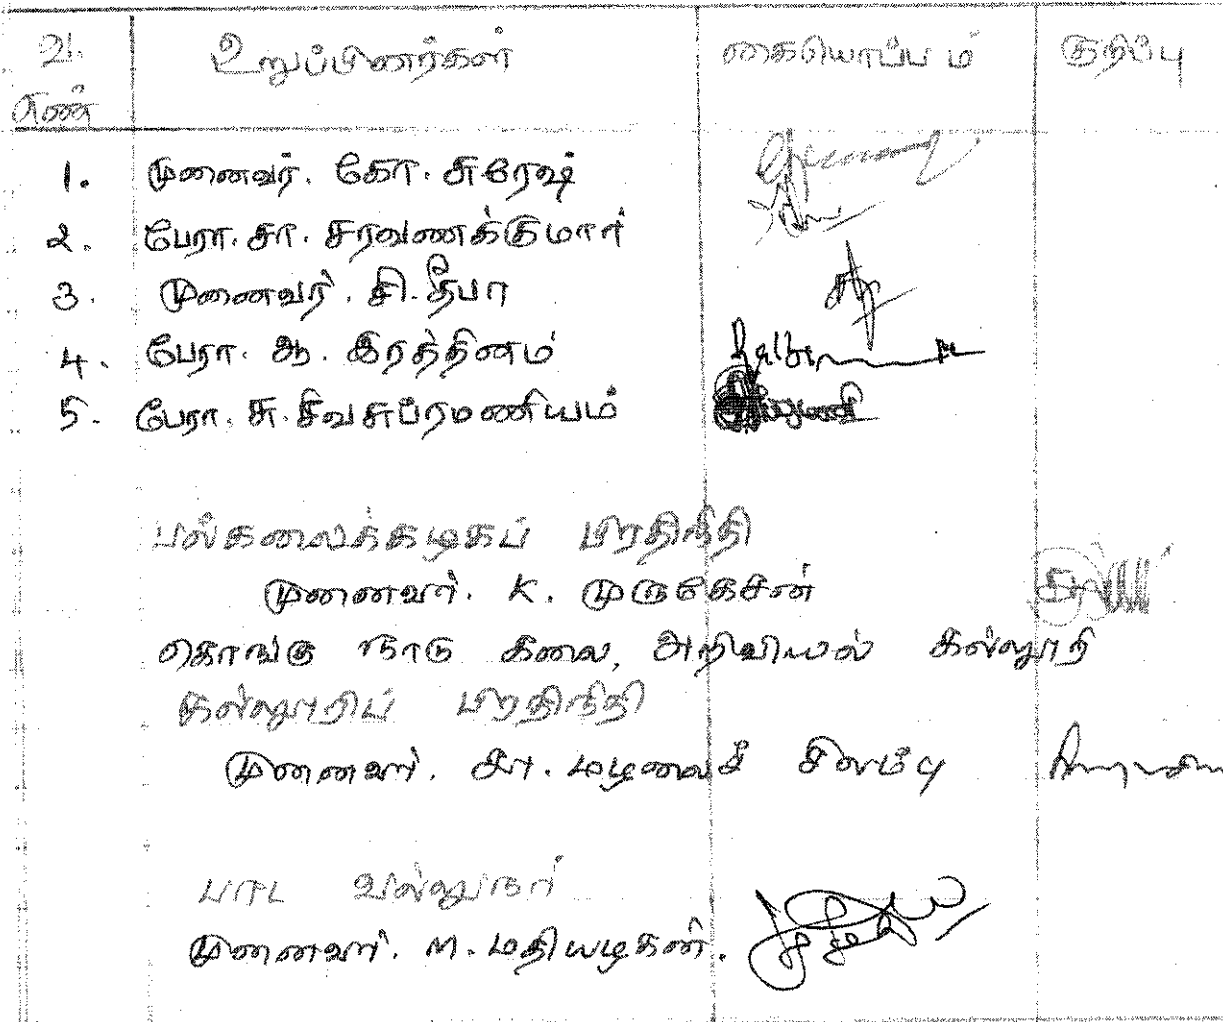 வ. உறுப்பினர்கள் கையொப்பம் குறிப்பு
எண்
1. முனைவர். கோ. சுரேஷ்
2. பேரா. சா. சரவணக்குமார்
3. முனைவர். சி. தீபா
4. பேரா. ஆ. இரத்தினம்
5. பேரா. சு. சிவசுப்ரமணியம்
பல்கலைக்கழகப் பிரதிநிதி
முனைவர். K. முருகேசன்
கொங்கு நாடு கலை, அறிவியல் கல்லூரி
கல்லூரிப் பிரதிநிதி
முனைவர். கா. மழலைச் சிலம்பு
பாட வல்லுநர்
முனைவர். M. மதியழகன்.